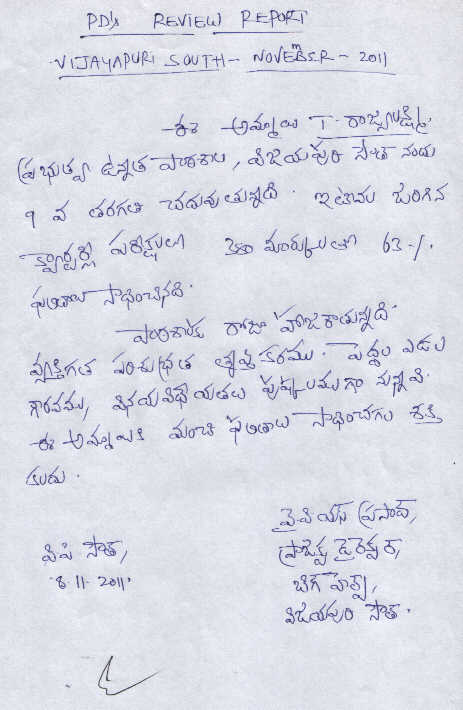 PD's REVIEW REPORT
VIJAYAPURI SOUTH - NOVEMBER - 2011
ఈ అమ్మాయి T. రాజ్యలక్ష్మి,
ప్రభుత్వ ఉన్నత పాఠశాల, విజయపురి సౌత్ నందు
9 వ తరగతి చదువుతున్నది. ఇటీవల జరిగిన
క్వార్టర్లీ పరీక్షలలో మార్కులతో 63%
ఫలితాలు సాధించినది.
పాఠశాలకు రోజూ హాజరౌతున్నది.
వ్యక్తిగత పరిశుభ్రత తృప్తికరము. పెద్దల ఎడల
గౌరవము, వినయవిధేయతలు పుష్కలముగా నున్నవి.
ఈ అమ్మాయికి మంచి ఫలితాలు సాధించగల శక్తి
కలదు.
వై పి యస్ ప్రసాద్,
వి పి సౌత్, ప్రాజెక్టు డైరెక్టర్,
8.11.2011. బిగ్ హెల్ప్,
విజయపురి సౌత్.